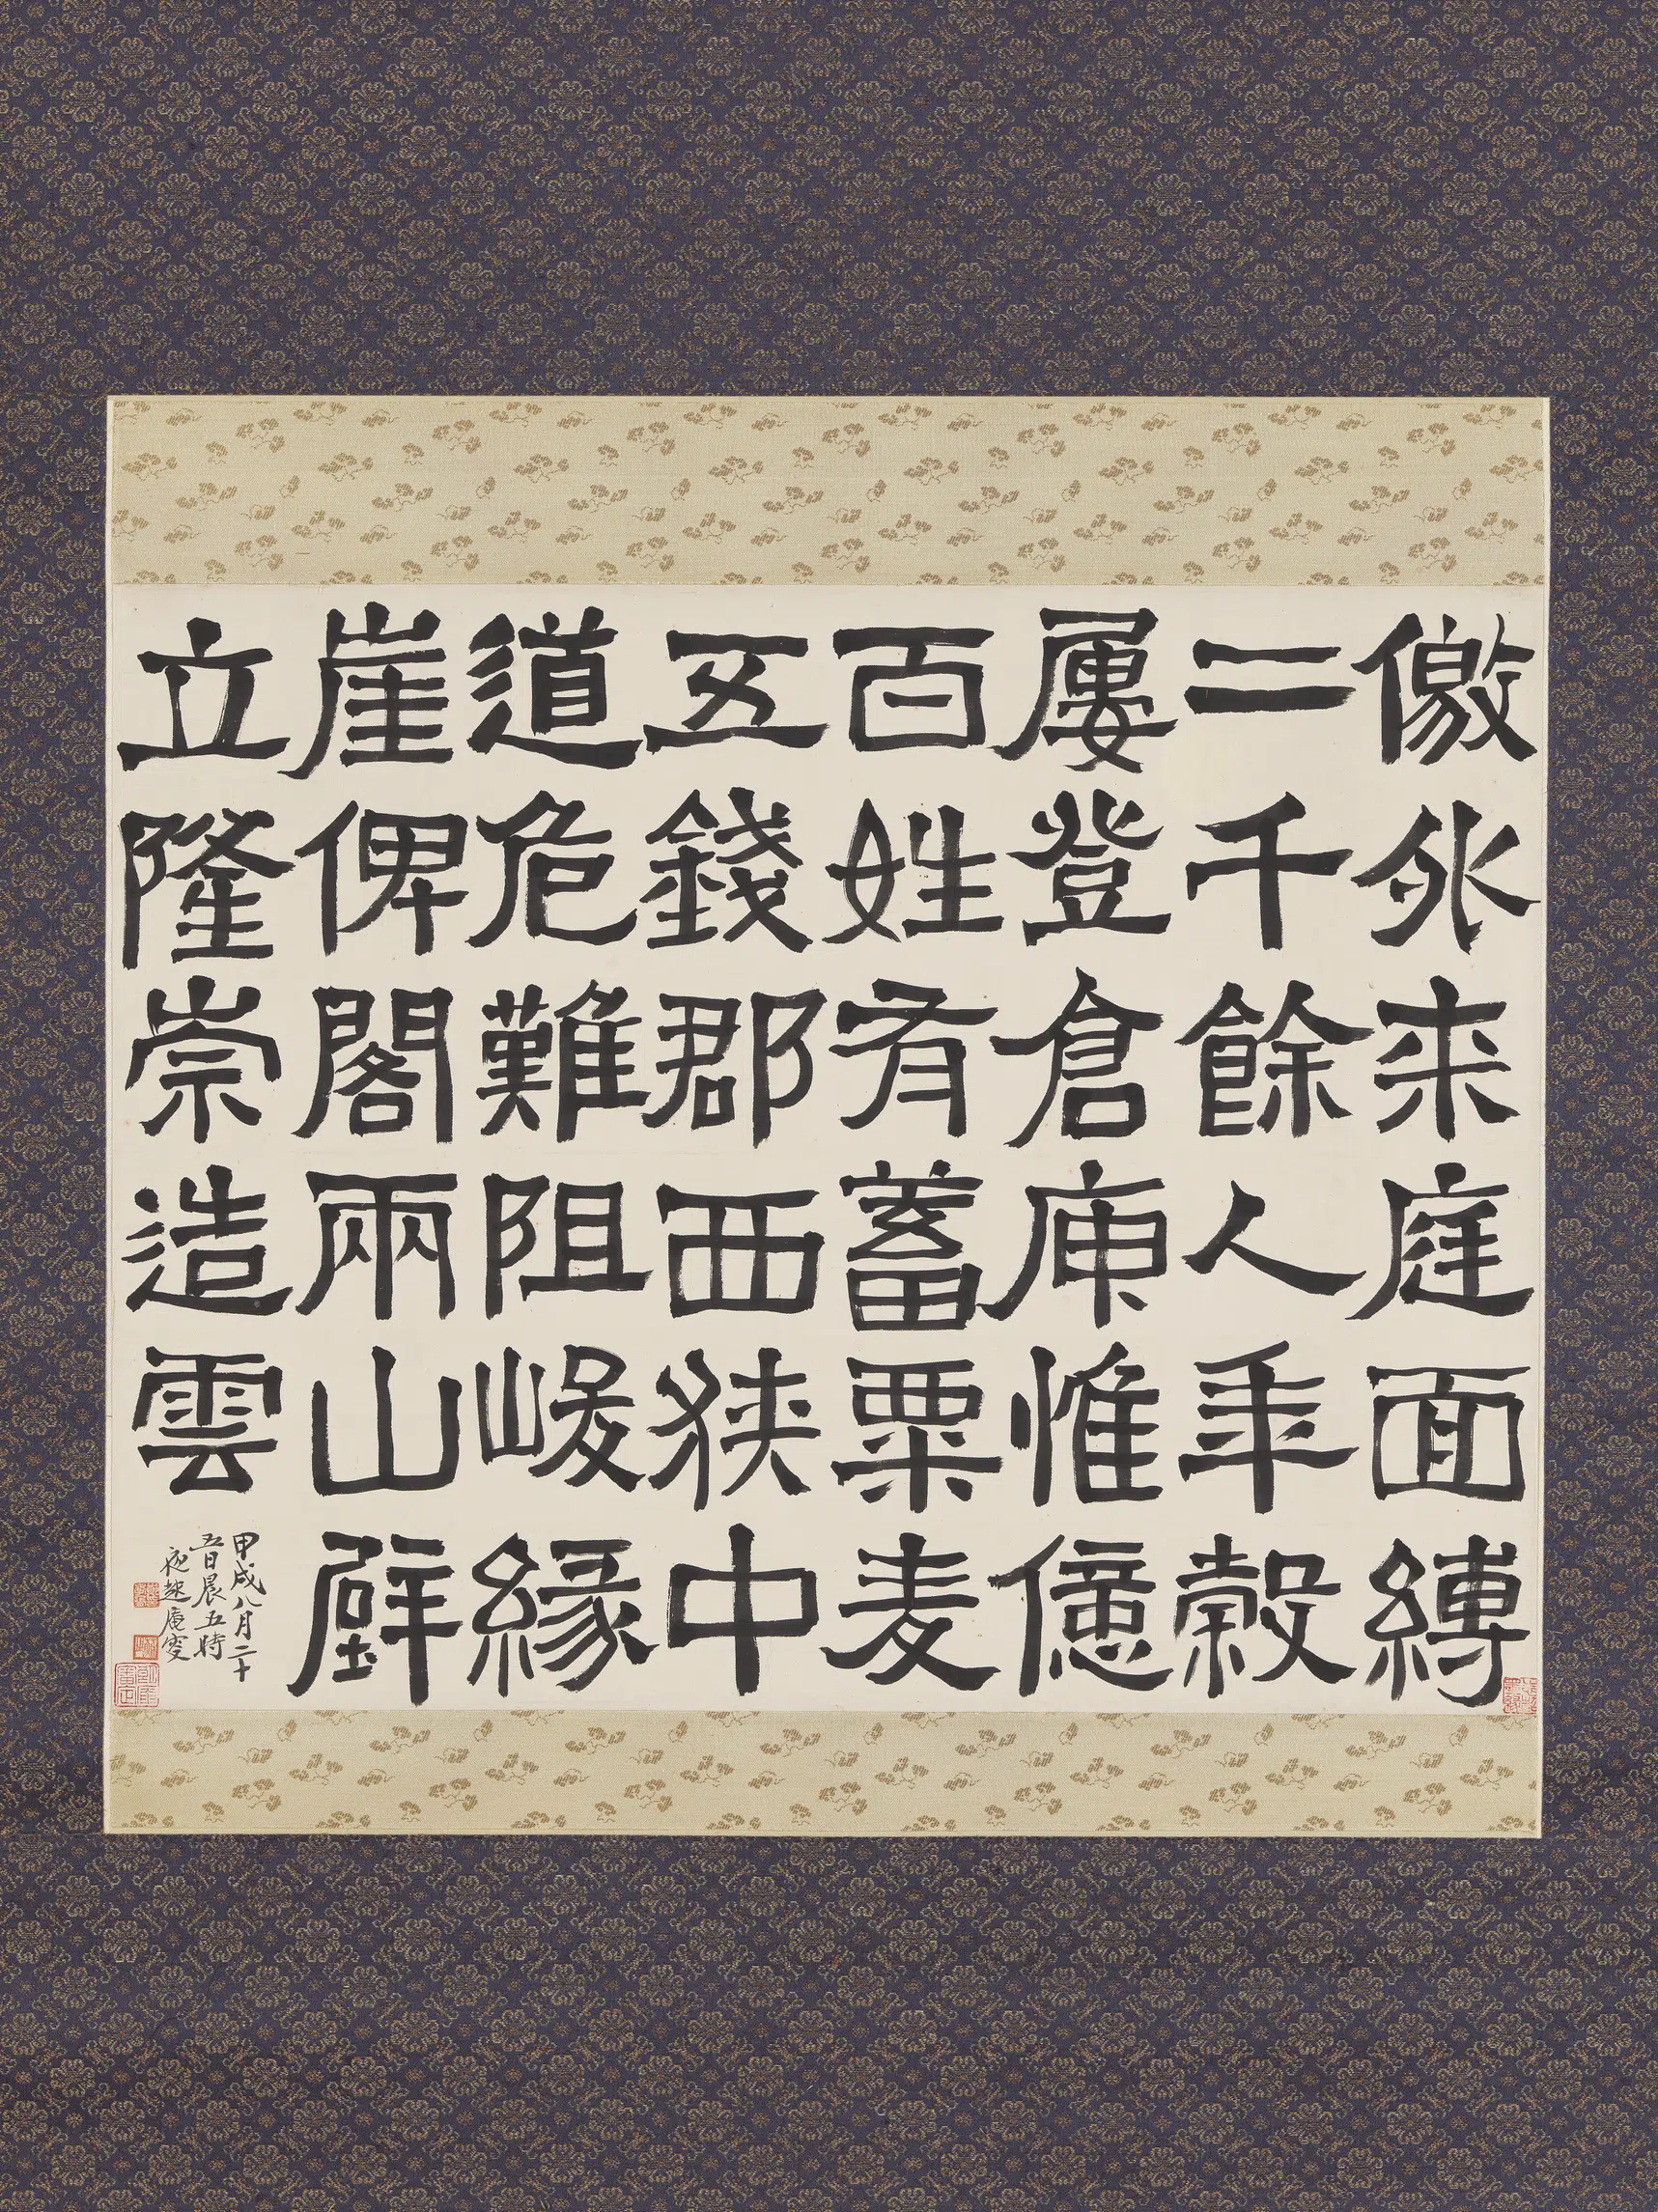 徼外来庭面縛
二千餘人年穀
屢登倉庾惟億
百姓有蓄粟麦
五錢郡西狹中
道危難阻峻緣
崖俾閣兩山壁
立隆崇造雲
甲戌八月二十
五日晨五時
夜起庵